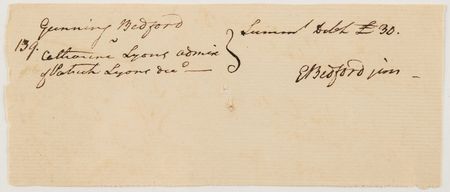 Gunning Bedford
139.
Catharine Lyons admix
of Patrick Lyons decd
Summs Debt £30.
GBedford jun